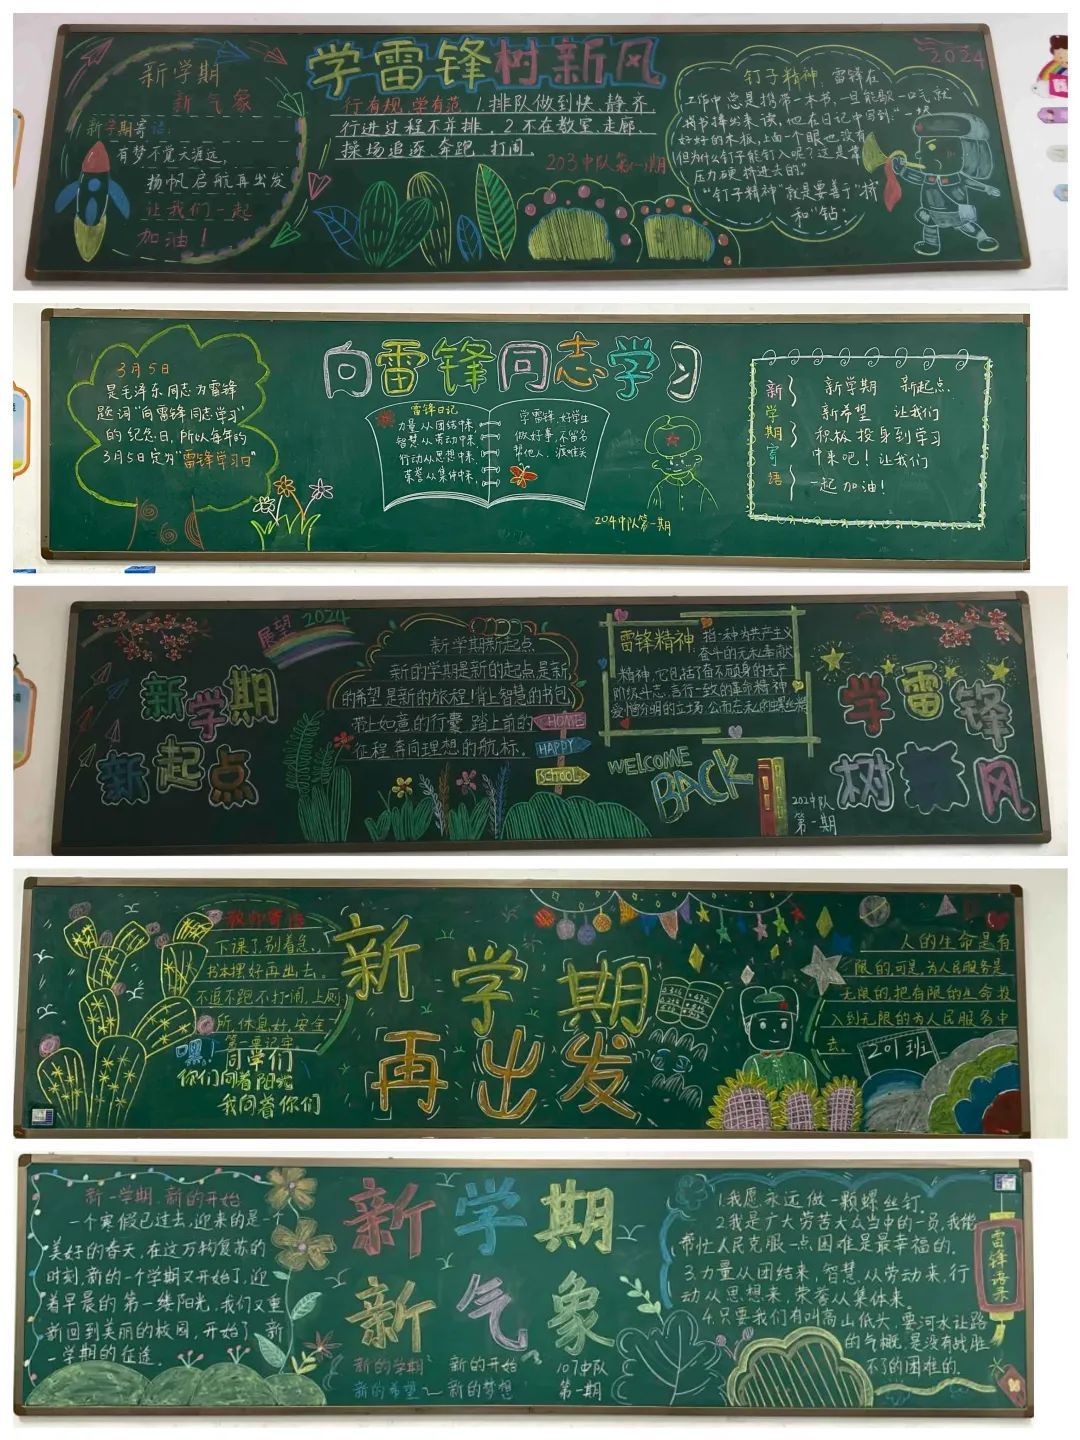 新学期
新气象
新学期寄语:
有梦不觉天涯远,
扬帆启航再出发
让我们一起
加油!
学雷锋树新风
行有规,学有范。1.排队做到快、静、齐,
行进过程不并排。2.不在教室、走廊、
操场追逐、奔跑、打闹。
203中队第一期
2024
钉子精神:雷锋在
工作中总是携带一本书,一旦能歇一口气就
将书择出来读,他在日记中写到:“一块
好好的木板,上面一个眼也没有,
但为什么钉子能钉入呢?这是靠
压力硬挤进去的。”
“钉子精神”就是要善于“挤”
和“钻”
向雷锋同志学习
3月5日
是毛泽东同志为雷锋
题词“向雷锋同志学习”
的纪念日,所以每年的
3月5日定为“雷锋学习日”
雷锋日记
力量从团结中来,
智慧从劳动中来,
行动从思想中来,
荣誉从集体中来,
学雷锋,好学生
做好事,不留名
帮他人,
204中队第一期
新学期寄语
新学期 新起点
新希望 让我们
积极投身到学习
中来吧!让我们
一起加油!
展望2024
新学期
新起点
新学期新起点
新的学期是新的起点,是新
的希望,是新的旅程!背上智慧的书包,
带上如意的行囊,踏上前的
征程,奔向理想的航标。
HOME
HAPPY
SCHOOL
雷锋精神,指一种为共产主义
奋斗的无私奉献
精神,它包括了奋不顾身的无产
阶级斗志,言行一致的革命精神,
爱憎分明的立场,公而忘私的
WELCOME
BACK
202中队
第一期
学雷锋
树新风
下课了,别着急,
书本摆好再出去。
不追不跑不打闹,上厕
所,休息好,安全
第一要记牢
嘿!同学们
你们向着阳光
我向着你们
新学期
再出发
人的生命是有
限的,可是,为人民服务是
无限的,把有限的生命投
入到无限的为人民服务中
去。
201班
新一学期,新的开始
一个寒假已过去,迎来的是一个
美好的春天,在这万物复苏的
时刻,新的一个学期又开始了,迎
着早晨的第一缕阳光,我们又重
新回到美丽的校园,开始了新
一学期的征途。
新学期
新气象
新的学期 新的开始
新的希望 新的梦想
107中队
第一期
1.我愿永远做一颗螺丝钉。
2.我是广大劳苦大众当中的一员,我能
帮忙人民克服一点困难是最幸福的。
3.力量从团结来,智慧从劳动来,行
动从思想来,荣誉从集体来。
4.只要我们有叫高山低头,要河水让路
的气概,是没有战胜
不了的困难的。
雷锋语录